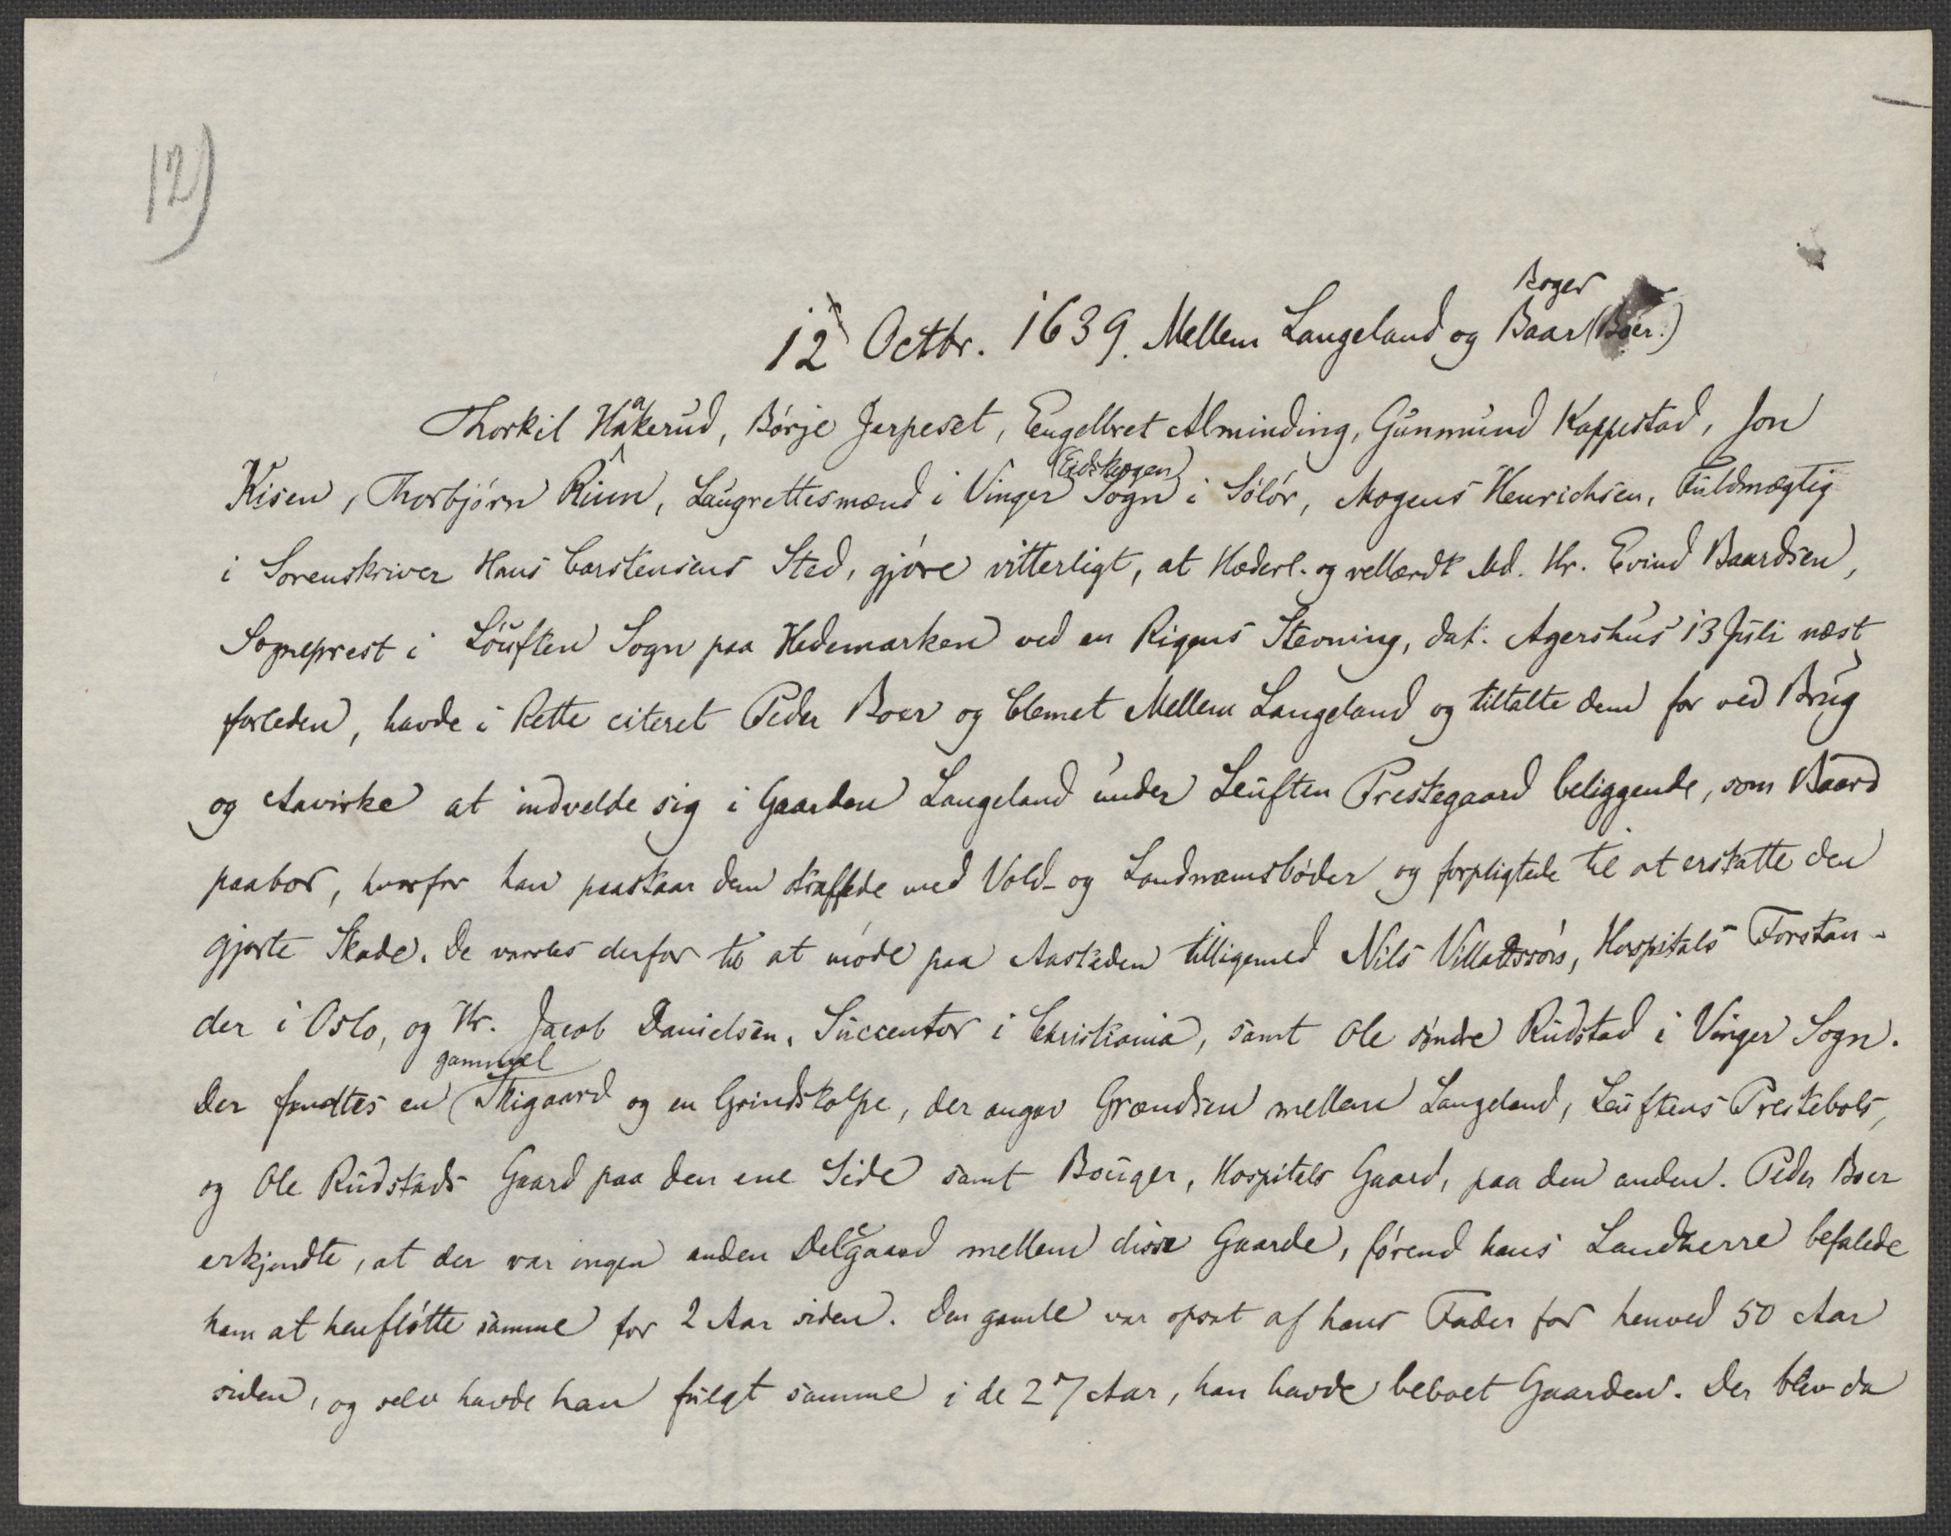 12)
Boger
12 Octbr. 1639. Mellem Langeland og Baar (Boer.)
Thorkil Håkerud, Børje Jerpeset, Eengelbret Alminding, Gunmund Kappestad, Jon
(Eidskogen)
Kisen, Thorbjørn Rinn, Laugrettesmænd i Vinger Sogn i Solør, Mogens Henrichsen, Fuldmægtig
i Sorenskriver Hans Carstensens Sted, gjøre vitterligt, at Hæderl. og vellærdt Md. Hr. Evind Baardsen,
Sogneprest i Løuften Sogn paa Hedemarken ved en Rigens Stevning, dat. Agershus 13 Juli næst
forleden, havde i Rette citeret Peder Boer og Clemet Mellem Langeland og tiltalte dem for ved Brug
og Aavirke at indvelde sig i Gaarden Langeland under Leuften Prestegaard beliggende, som Baard
paabor, hvorfor han paaskaar dem straffede med Vold- og Landnamsbøder og forpligtede til at erstatte den
gjorte Skade. De varsles derfor til at møde paa Aasteden tilligemed Nils Villadssøn, Hospitals Forstan-
der i Oslo, og Hr. Jacob Danielsen, Succentor i Christiania, samt Ole søndre Rudstad i Vinger Sogn.
gammel
Der fandtes en Skigaard og en Grindstolpe, der angav Grændsen mellem Langeland, Leuftens Prestebols,
og Ole Rudstads Gaard paa den ene Side samt Bouger, Hospitals Gaard, paa den anden. Peder Boer
erkjendte, at der var ingen anden Delegaard mellem disse Gaarde, førend hans Landherre befalede
ham at henfløtte samme for 2 Aar siden. Den gamle var opsat af hans Fader for henved 50 Aar
siden, og selv havde han fulgt samme i de 27 Aar, han havde beboet Gaarden. Der blev da